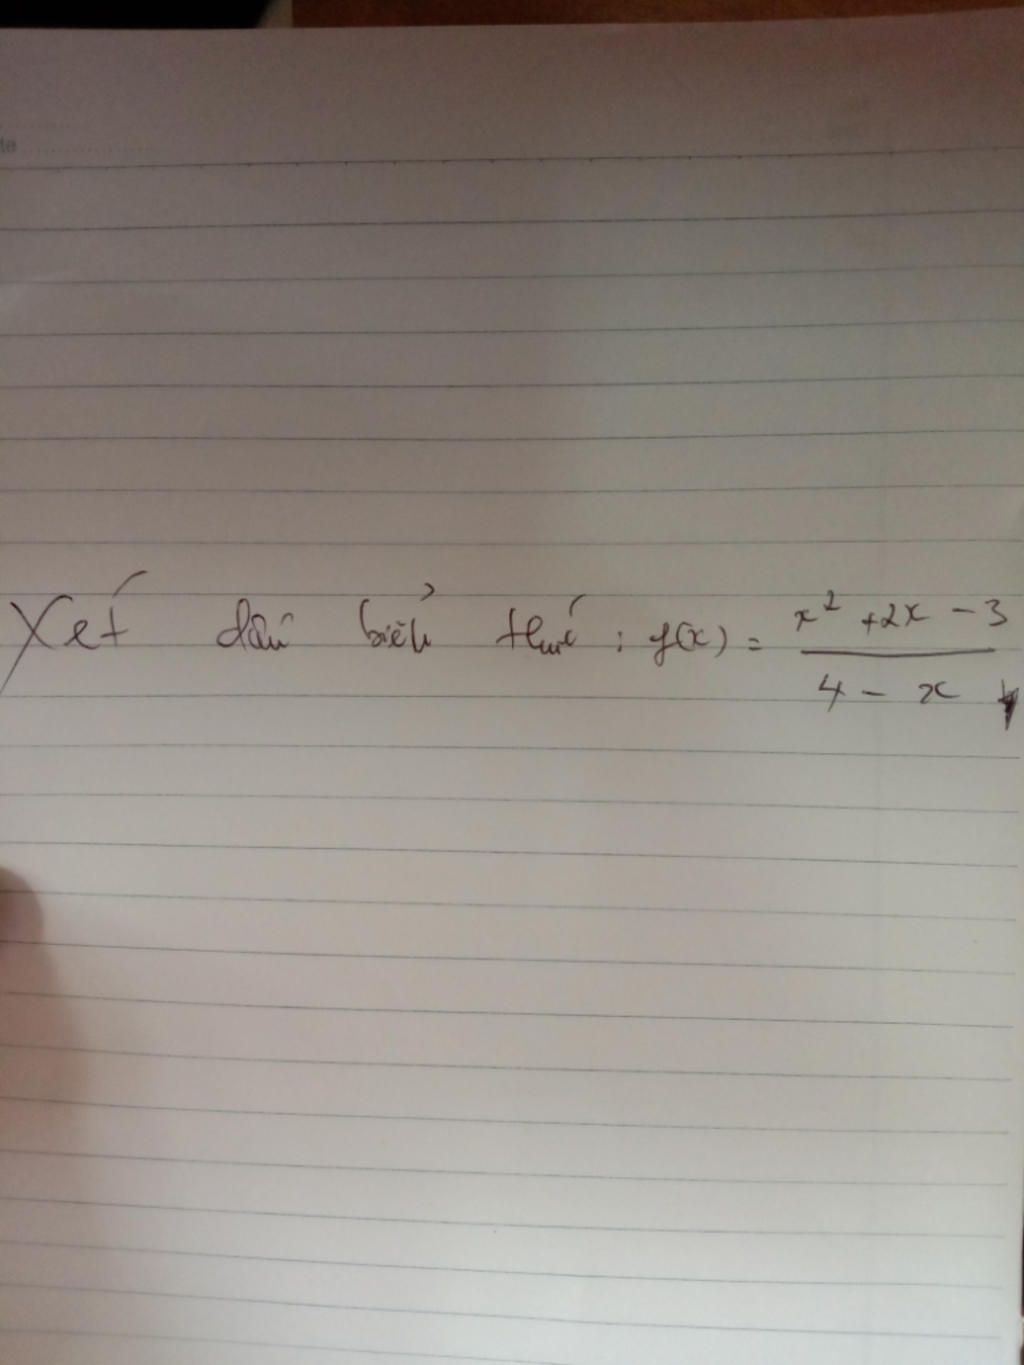 Xét dấu biểu thức : f(x) = \frac{x^2 + 2x - 3}{4 - x}